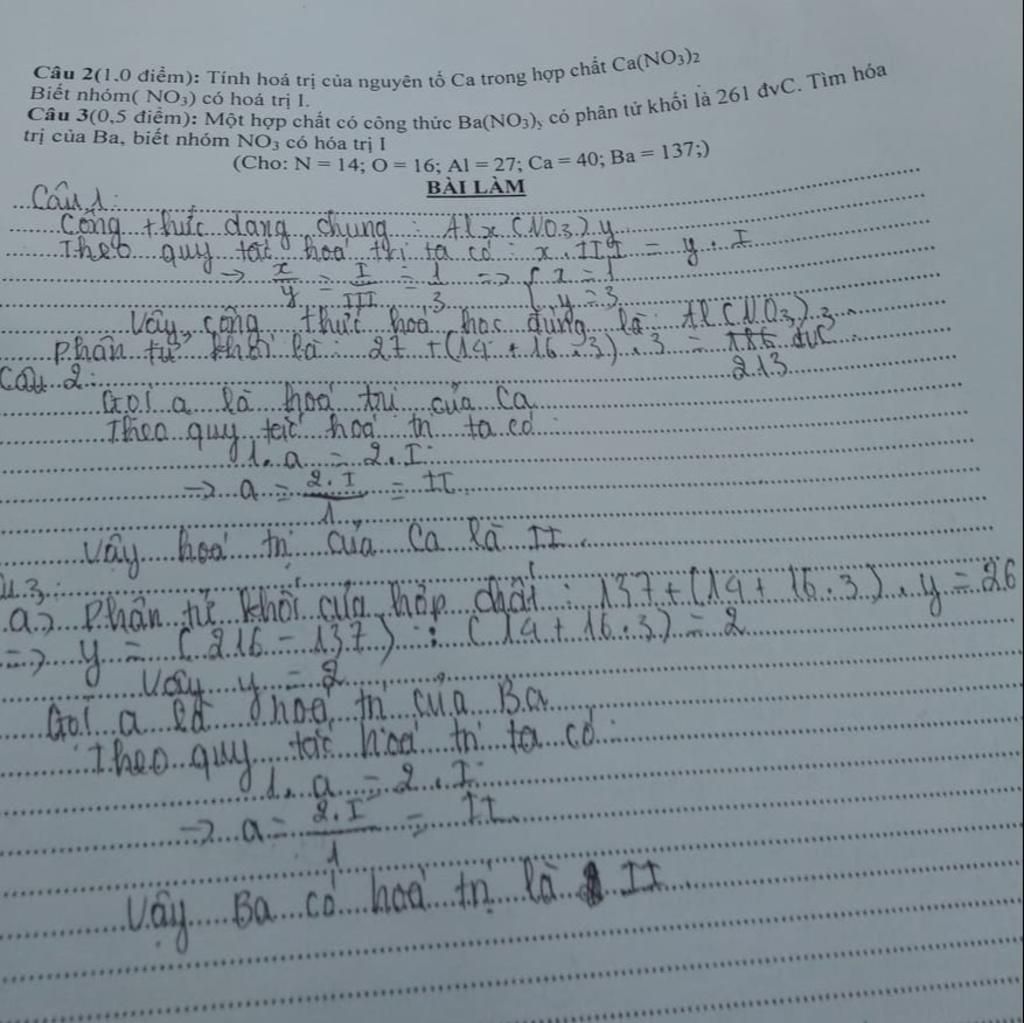 Câu 2(1.0 điểm): Tính hoá trị của nguyên tố Ca trong hợp chất Ca(NO₃)₂
Biết nhóm( NO₃) có hoá trị I.
Câu 3(0,5 điểm): Một hợp chất có công thức Ba(NO₃)ᵧ có phân tử khối là 261 đvC. Tìm hóa
trị của Ba, biết nhóm NO₃ có hóa trị I
(Cho: N = 14; O = 16; Al = 27; Ca = 40; Ba = 137;)
BÀI LÀM
Câu 1:
Công thức dạng chung : Alx(NO₃)y
Theo quy tắc hoá trị ta có : x.III = y.I
→ x/y = I/III = 1/3 => { x = 1
y = 3
Vậy công thức hoá học đúng là: Al(NO₃)3
Phân tử khối là: 27 + (14 + 16.3).3 = 186 đvC
213
Câu 2:
Gọi a là hoá trị của Ca
Theo quy tắc hoá trị ta có
1.a = 2.I
→ a = 2.I/1 = II
Vậy hoá trị của Ca là II
u 3:
a> Phân tử khối của hợp chất : 137 + (14 + 16.3).y = 26
=> y = (216 - 137) : (14 + 16.3) = 2
Vậy y = 2
Gọi a là hoá trị của Ba
Theo quy tắc hoá trị ta có :
1.a = 2.I
→ a = 2.I/1 = II
Vậy Ba có hoá trị là II